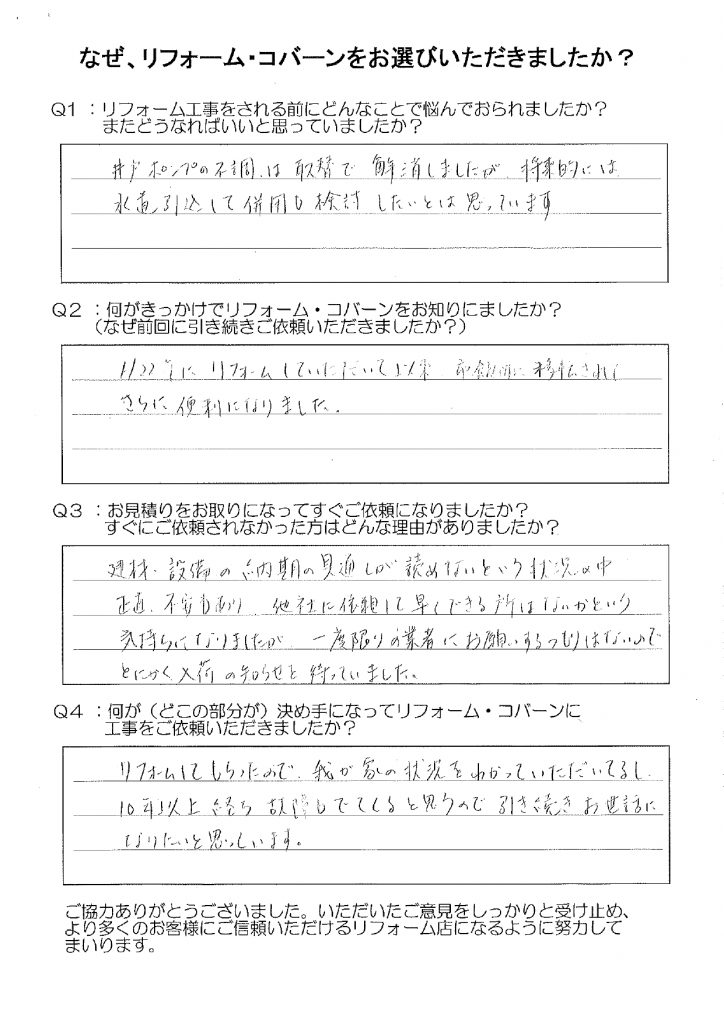 なぜ、リフォーム・コバーンをお選びいただきましたか？
Q1 ：リフォーム工事をされる前にどんなことで悩んでおられましたか？
またどうなればいいと思っていましたか？
井戸ポンプの不調は取替で解消しましたが、将来的には
水道引込して併用も検討したいとは思っています
Q2 ：何がきっかけでリフォーム・コバーンをお知りにましたか？
（なぜ前回に引き続きご依頼いただきましたか？）
リフォームしていただいて以来 移転されて
さらに便利になりました。
Q3 ：お見積りをお取りになってすぐご依頼になりましたか？
すぐにご依頼されなかった方はどんな理由がありましたか？
建材・設備の納期の見通しが読めないという状況の中
正直、不安もあり、他社に依頼して早くできる所はないかという
気持ちになりましたが、一度限りの業者にお願いするつもりはないので
とにかく入荷の知らせを待っていました。
Q4 ：何が（どこの部分が）決め手になってリフォーム・コバーンに
工事をご依頼いただきましたか？
リフォームしてもらったので、我が家の状況をわかっていただいてるし、
10年以上経ち故障もでてくると思うので引き続きお世話に
なりたいと思っています。
ご協力ありがとうございました。いただいたご意見をしっかりと受け止め、
より多くのお客様にご信頼いただけるリフォーム店になるように努力して
まいります。